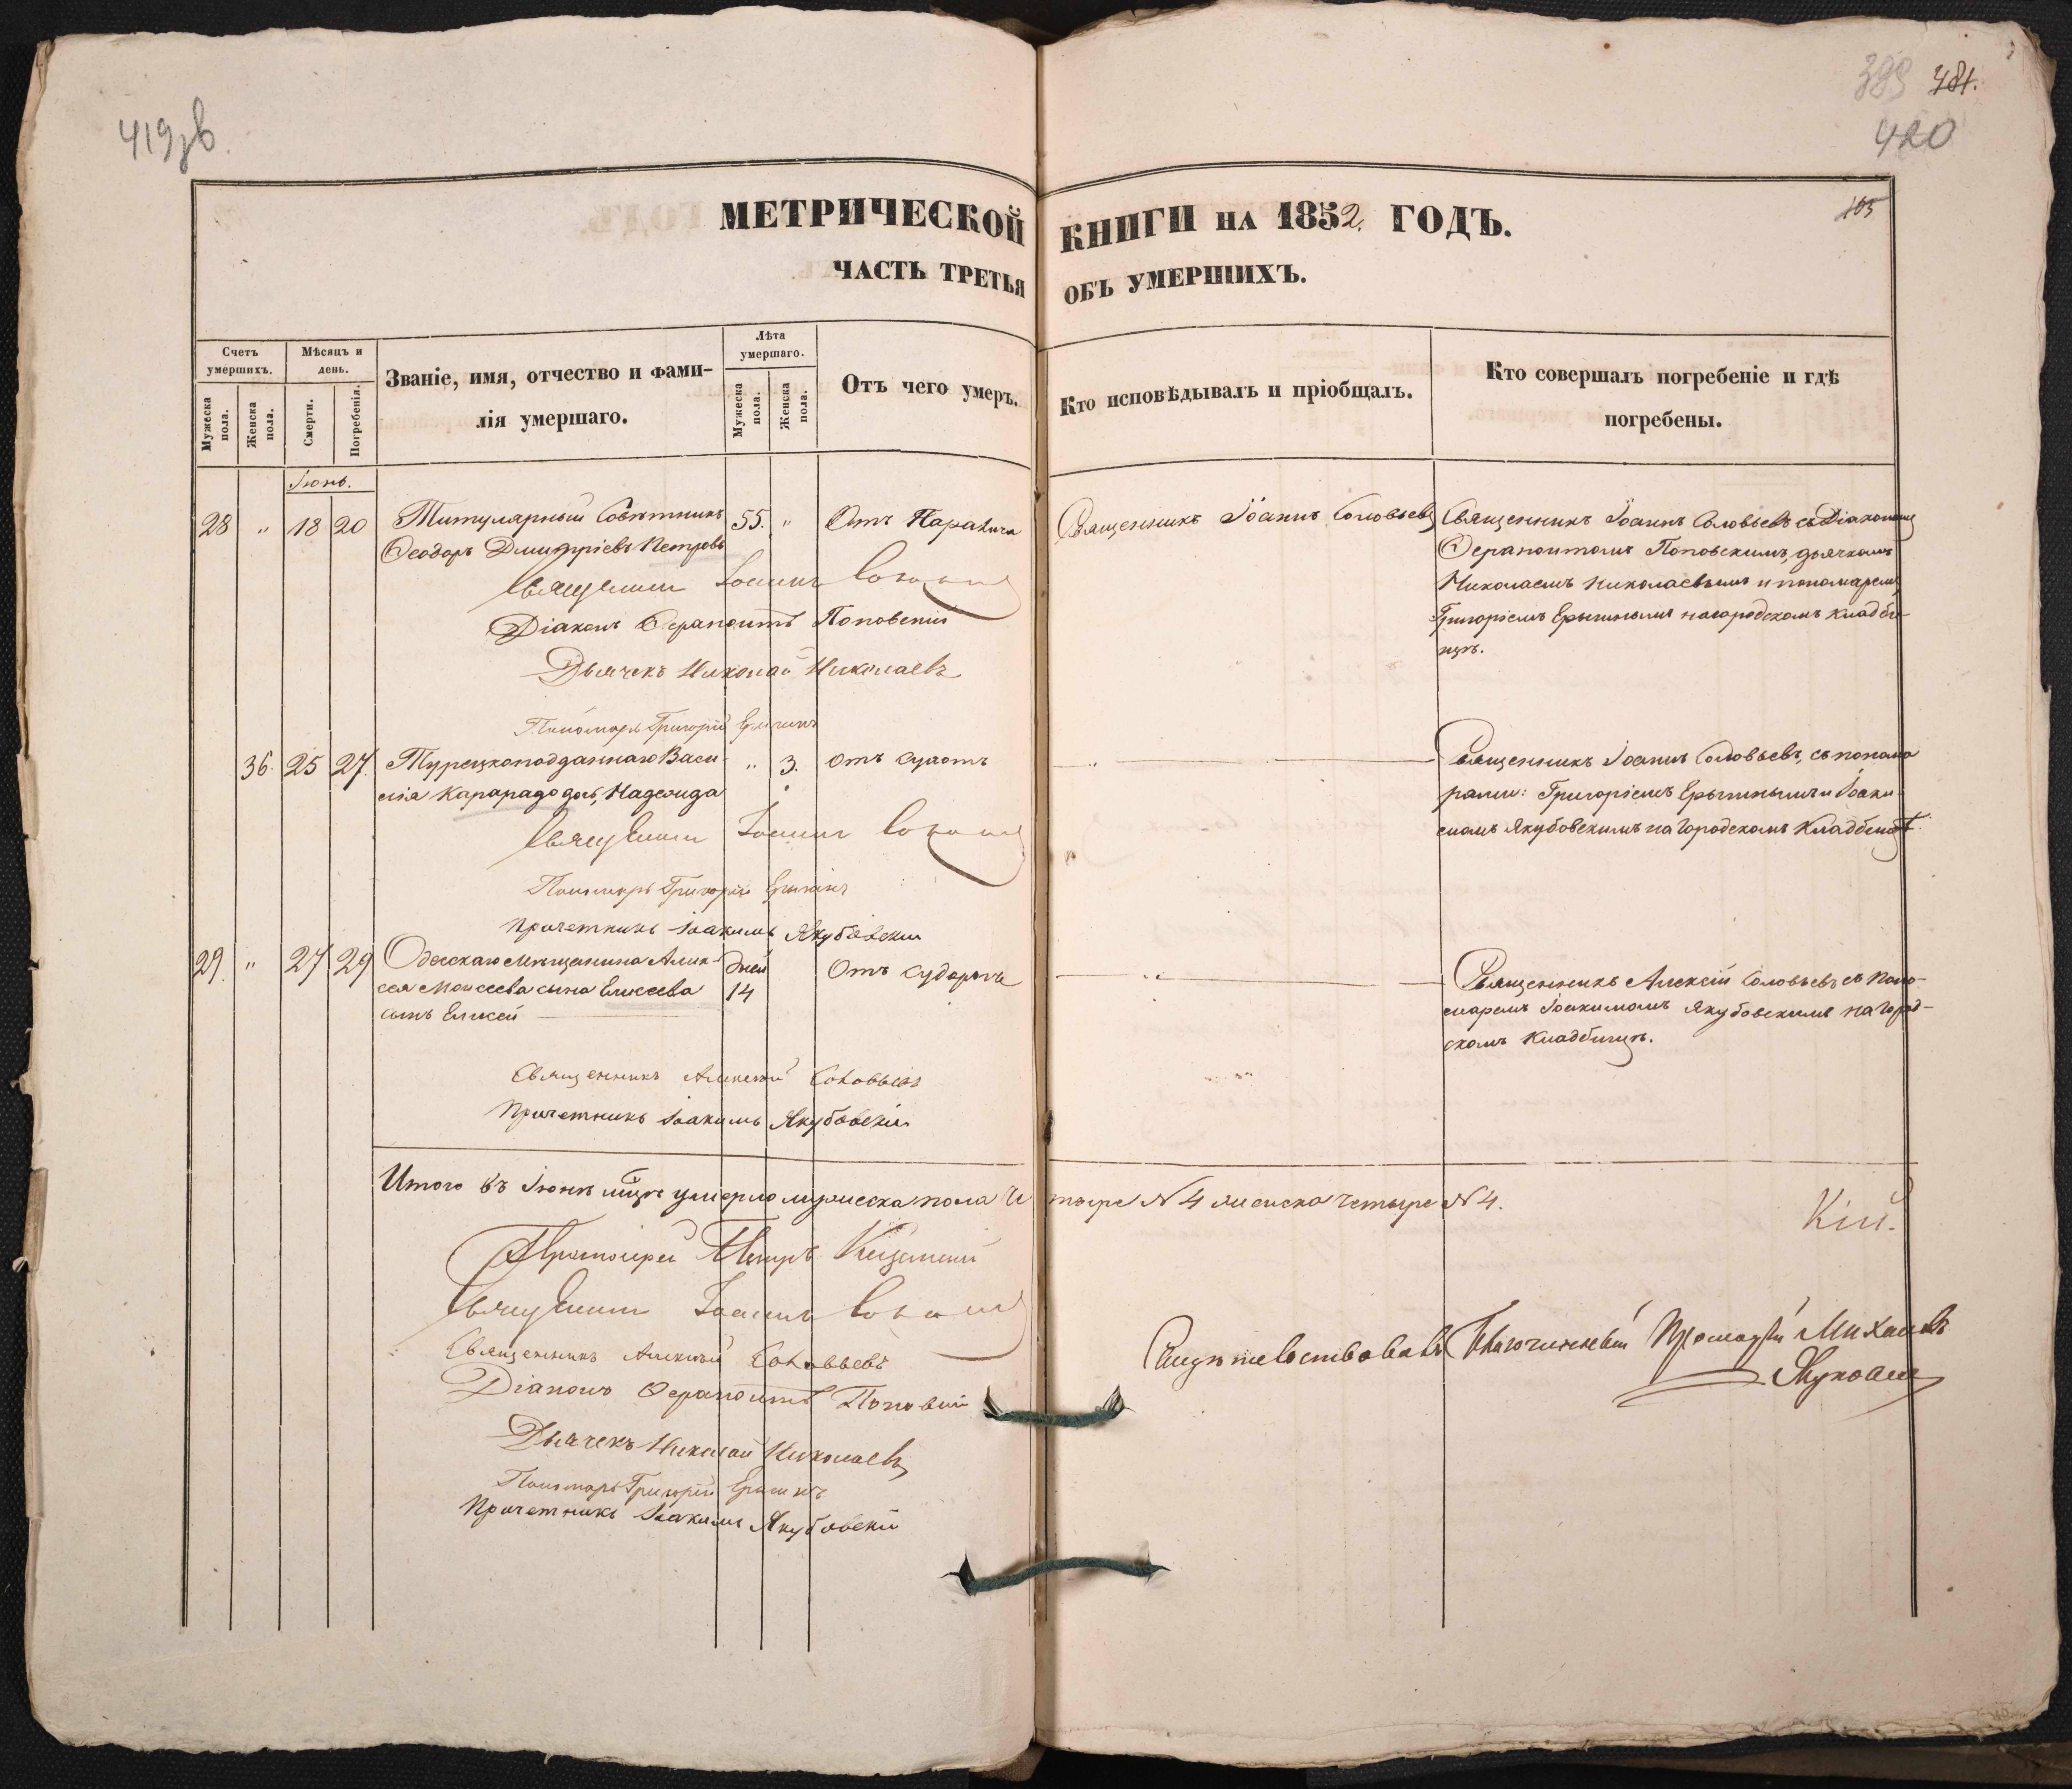 419зв.
393 481.
420
105
МЕТРИЧЕСКОЙ КНИГИ НА 1852 ГОДЪ.
ЧАСТЬ ТРЕТЬЯ ОБЪ УМЕРШИХЪ.
Счетъ умершихъ.
Мужеска пола.
Женска пола.
Мѣсяцъ и день.
Смерти.
Погребенія.
Званіе, имя, отчество и фами-
лія умершаго.
Лѣта умершаго.
Мужеска пола.
Женска пола.
Отъ чего умеръ.
Кто исповѣдывалъ и пріобщалъ.
Кто совершалъ погребеніе и гдѣ
погребены.
Іюнь.
28 " 18 20 Титулярный Совѣтникъ 55. " Отъ Паралича Священникъ Іоаннъ Соловьевъ
Ѳеодоръ Дмитріевъ Петровъ
Священникъ Іоаннъ Соловьевъ съ Діакономъ
Ѳерапонтомъ Поповскимъ, дьячкомъ
Николаемъ Николаевымъ и пономаремъ
Григоріемъ Ерыгинымъ на городскомъ кладби-
щѣ.
Священникъ Іоаннъ Соловьевъ
Діаконъ Ѳерапонтъ Поповскій
Дьячекъ Николай Николаевъ
Пономарь Григорій Ерыгинъ
36. 25 27. Турецкоподданнаго Васи- " 3. отъ сухотъ "
лія Карарадо дочь, Надежда
Священникъ Іоаннъ Соловьевъ, съ понома
рями: Григоріемъ Ерыгинымъ и Іоаки
момъ Якубовскимъ на Городскомъ Кладбищѣ.
Священникъ Іоаннъ Соловьевъ
Пономарь Григорій Ерыгинъ
Причетникъ Іоакимъ Якубовскій
29. " 27 29 Одесскаго Мѣщанина Алек- дней Отъ судорогъ "
сея Моисеева сына Елисеева 14
сынъ Елисей
Священникъ Алексій Соловьевъ съ Поно-
маремъ Іоакимомъ Якубовскимъ на город-
скомъ Кладбищѣ.
Священникъ Алексій Соловьевъ
Причетникъ Іоакимъ Якубовскій
Итого въ Іюнѣ мцѣ умерло мужеска пола четыре №4 женска четыре №4.
Протоіерей Петръ
Священникъ Іоаннъ Соловьевъ
Священникъ Алексій Соловьевъ
Діаконъ Ѳерапонтъ Поповскій
Дьячекъ Николай Николаевъ
Пономарь Григорій Ерыгинъ
Причетникъ Іоакимъ Якубовскій
Свидѣтельствовалъ Благочинный Протоіерей Михаилъ